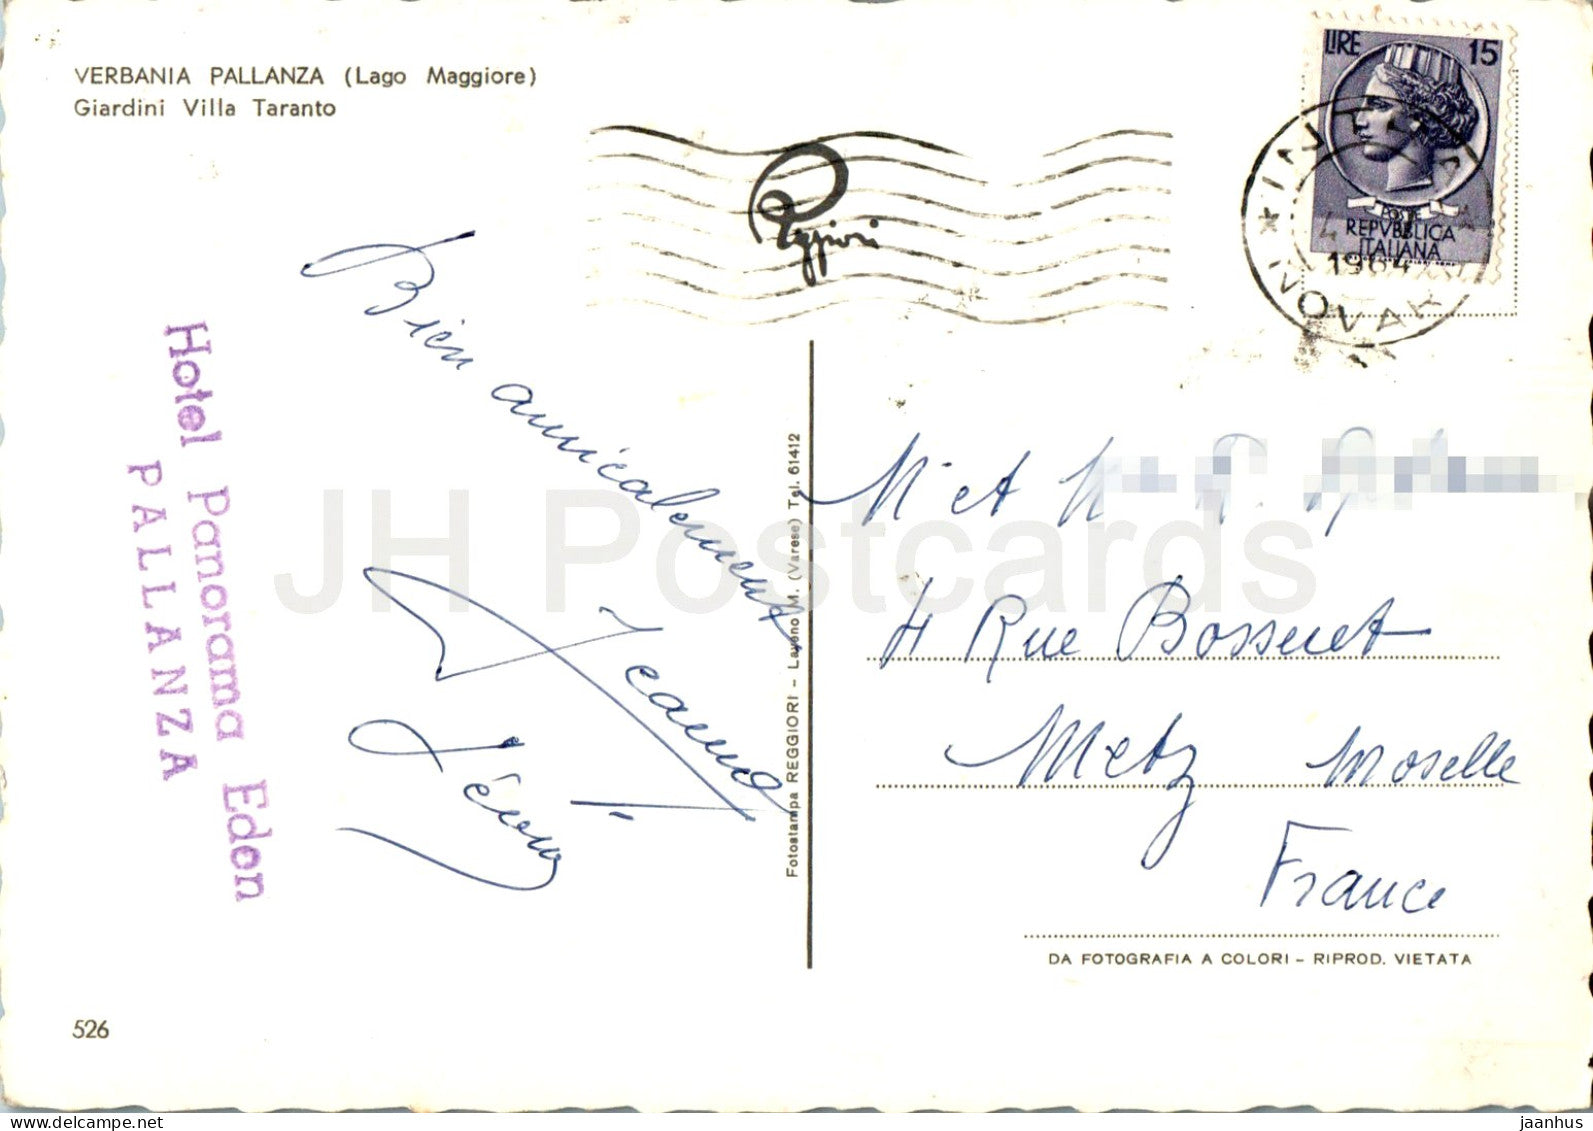 VERBANIA PALLANZA (Lago Maggiore)
Giardini Villa Taranto
LIRE 15
POSTE
REPVBBLICA
ITALIANA
1964
NOVARA
Reggiori
Hotel Panorama Edon
PALLANZA
Bien amicalement
Jeanne
Fotostampa REGGIORI - Laveno M. (Varese) Tel. 61412
M et M
4 Rue Bossuet
Metz Moselle
France
DA FOTOGRAFIA A COLORI - RIPROD. VIETATA
526
JH Postcards
delcampe.net
jaanhus